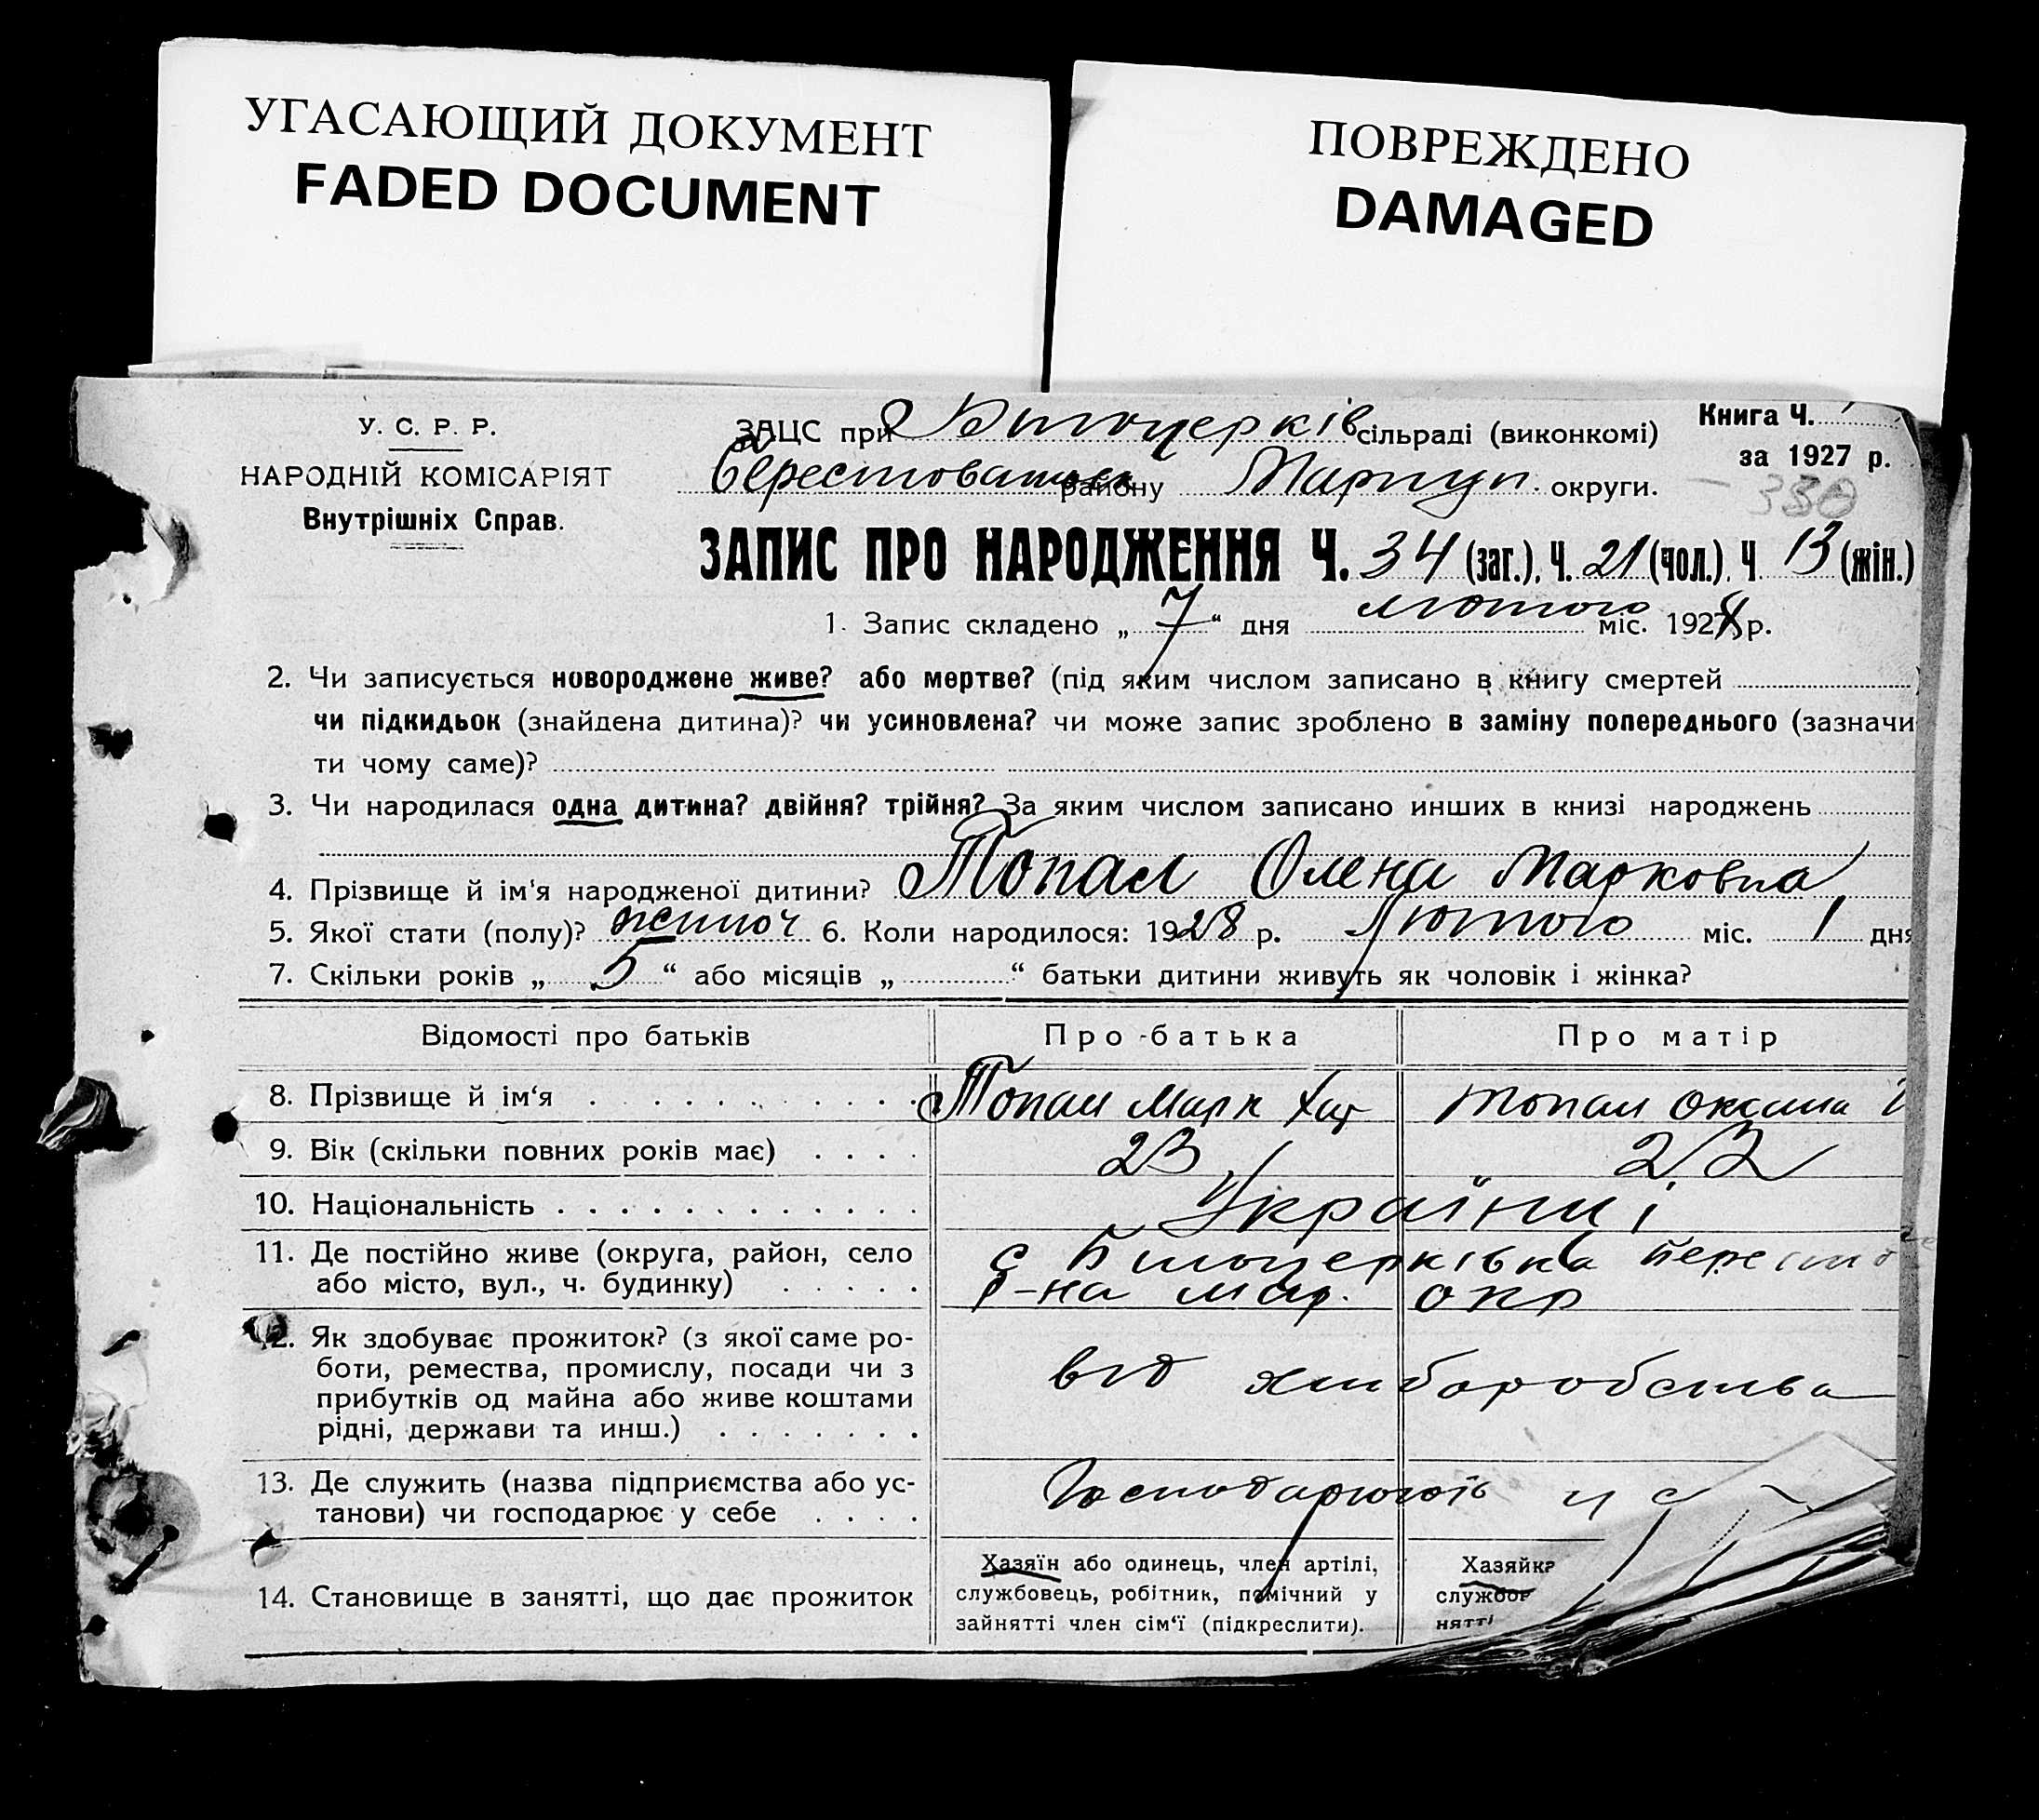 УГАСАЮЩИЙ ДОКУМЕНТ
FADED DOCUMENT
ПОВРЕЖДЕНО
DAMAGED
У. С. Р. Р.
НАРОДНІЙ КОМІСАРІЯТ
Внутрішніх Справ.
ЗАЦС при Білоцерків сільраді (виконкомі)
району Маріуп. округи.
Книга Ч.
за 1927 р.
330
ЗАПИС ПРО НАРОДЖЕННЯ Ч. 34 (заг.), Ч. 21 (чол.). Ч 13 (жін.)
1. Запис складено „ 7 “ дня лютого міс. 1928 р.
2. Чи записується новороджене живе? або мертве? (під яким числом записано в книгу смертей
чи підкидьок (знайдена дитина)? чи усиновлена? чи може запис зроблено в заміну попереднього (зазначи
ти чому саме)?
3. Чи народилася одна дитина? двійня? трійня? За яким числом записано инших в книзі народжень
4. Прізвище й ім'я народженої дитини? Топал Олена Марковна
5. Якої стати (полу)? жіноч 6. Коли народилося: 1928 р. Лютого міс. 1 дня
7. Скільки років „ 5 “ або місяців „ “ батьки дитини живуть як чоловік і жінка?
Відомості про батьків Про батька Про матір
8. Прізвище й ім‘я . . . . . . . . . . . . Топал Марк Топал Оксана
9. Вік (скільки повних років має) . . . . 23 22
10. Національність . . . . . . . . . . . . . Українці
11. Де постійно живе (округа, район, село с Білоцерківка
або місто, вул., ч. будинку) . . . . . р-на Мар. окр
12. Як здобуває прожиток? (з якої саме ро-
боти, ремества, промислу, посади чи з від хліборобства
прибутків од майна або живе коштами
рідні, держави та инш.) . . . . . . .
13. Де служить (назва підприємства або ус- Господарюють у с
танови) чи господарює у себе . . . .
14. Становище в занятті, що дає прожиток
Хазяїн або одинець, член артілі,
службовець, робітник, помічний у
зайнятті член сім‘ї (підкреслити).
Хазяйка
службов
нятті